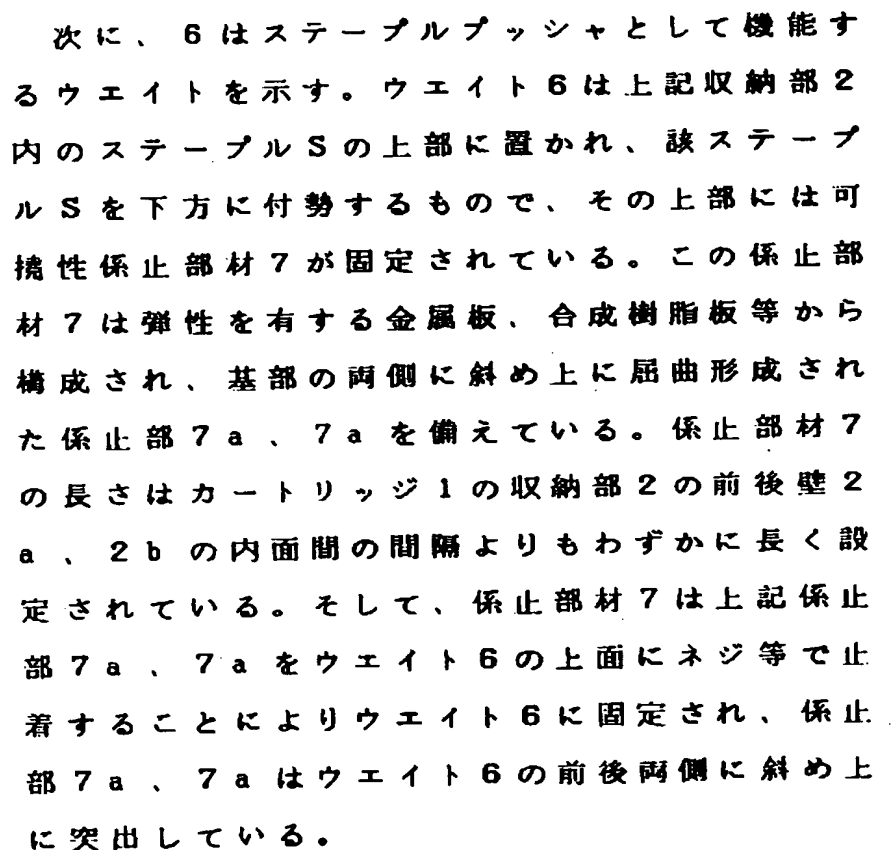 次に、6はステープルプッシャとして機能す
るウエイトを示す。ウエイト6は上記収納部2
内のステープルSの上部に置かれ、該ステープ
ルSを下方に付勢するもので、その上部には可
撓性係止部材7が固定されている。この係止部
材7は弾性を有する金属板、合成樹脂板等から
構成され、基部の両側に斜め上に屈曲形成され
た係止部7a、7aを備えている。係止部材7
の長さはカートリッジ1の収納部2の前後壁2
a、2bの内面間の間隔よりもわずかに長く設
定されている。そして、係止部材7は上記係止
部7a、7aをウエイト6の上面にネジ等で止
着することによりウエイト6に固定され、係止
部7a、7aはウエイト6の前後両側に斜め上
に突出している。